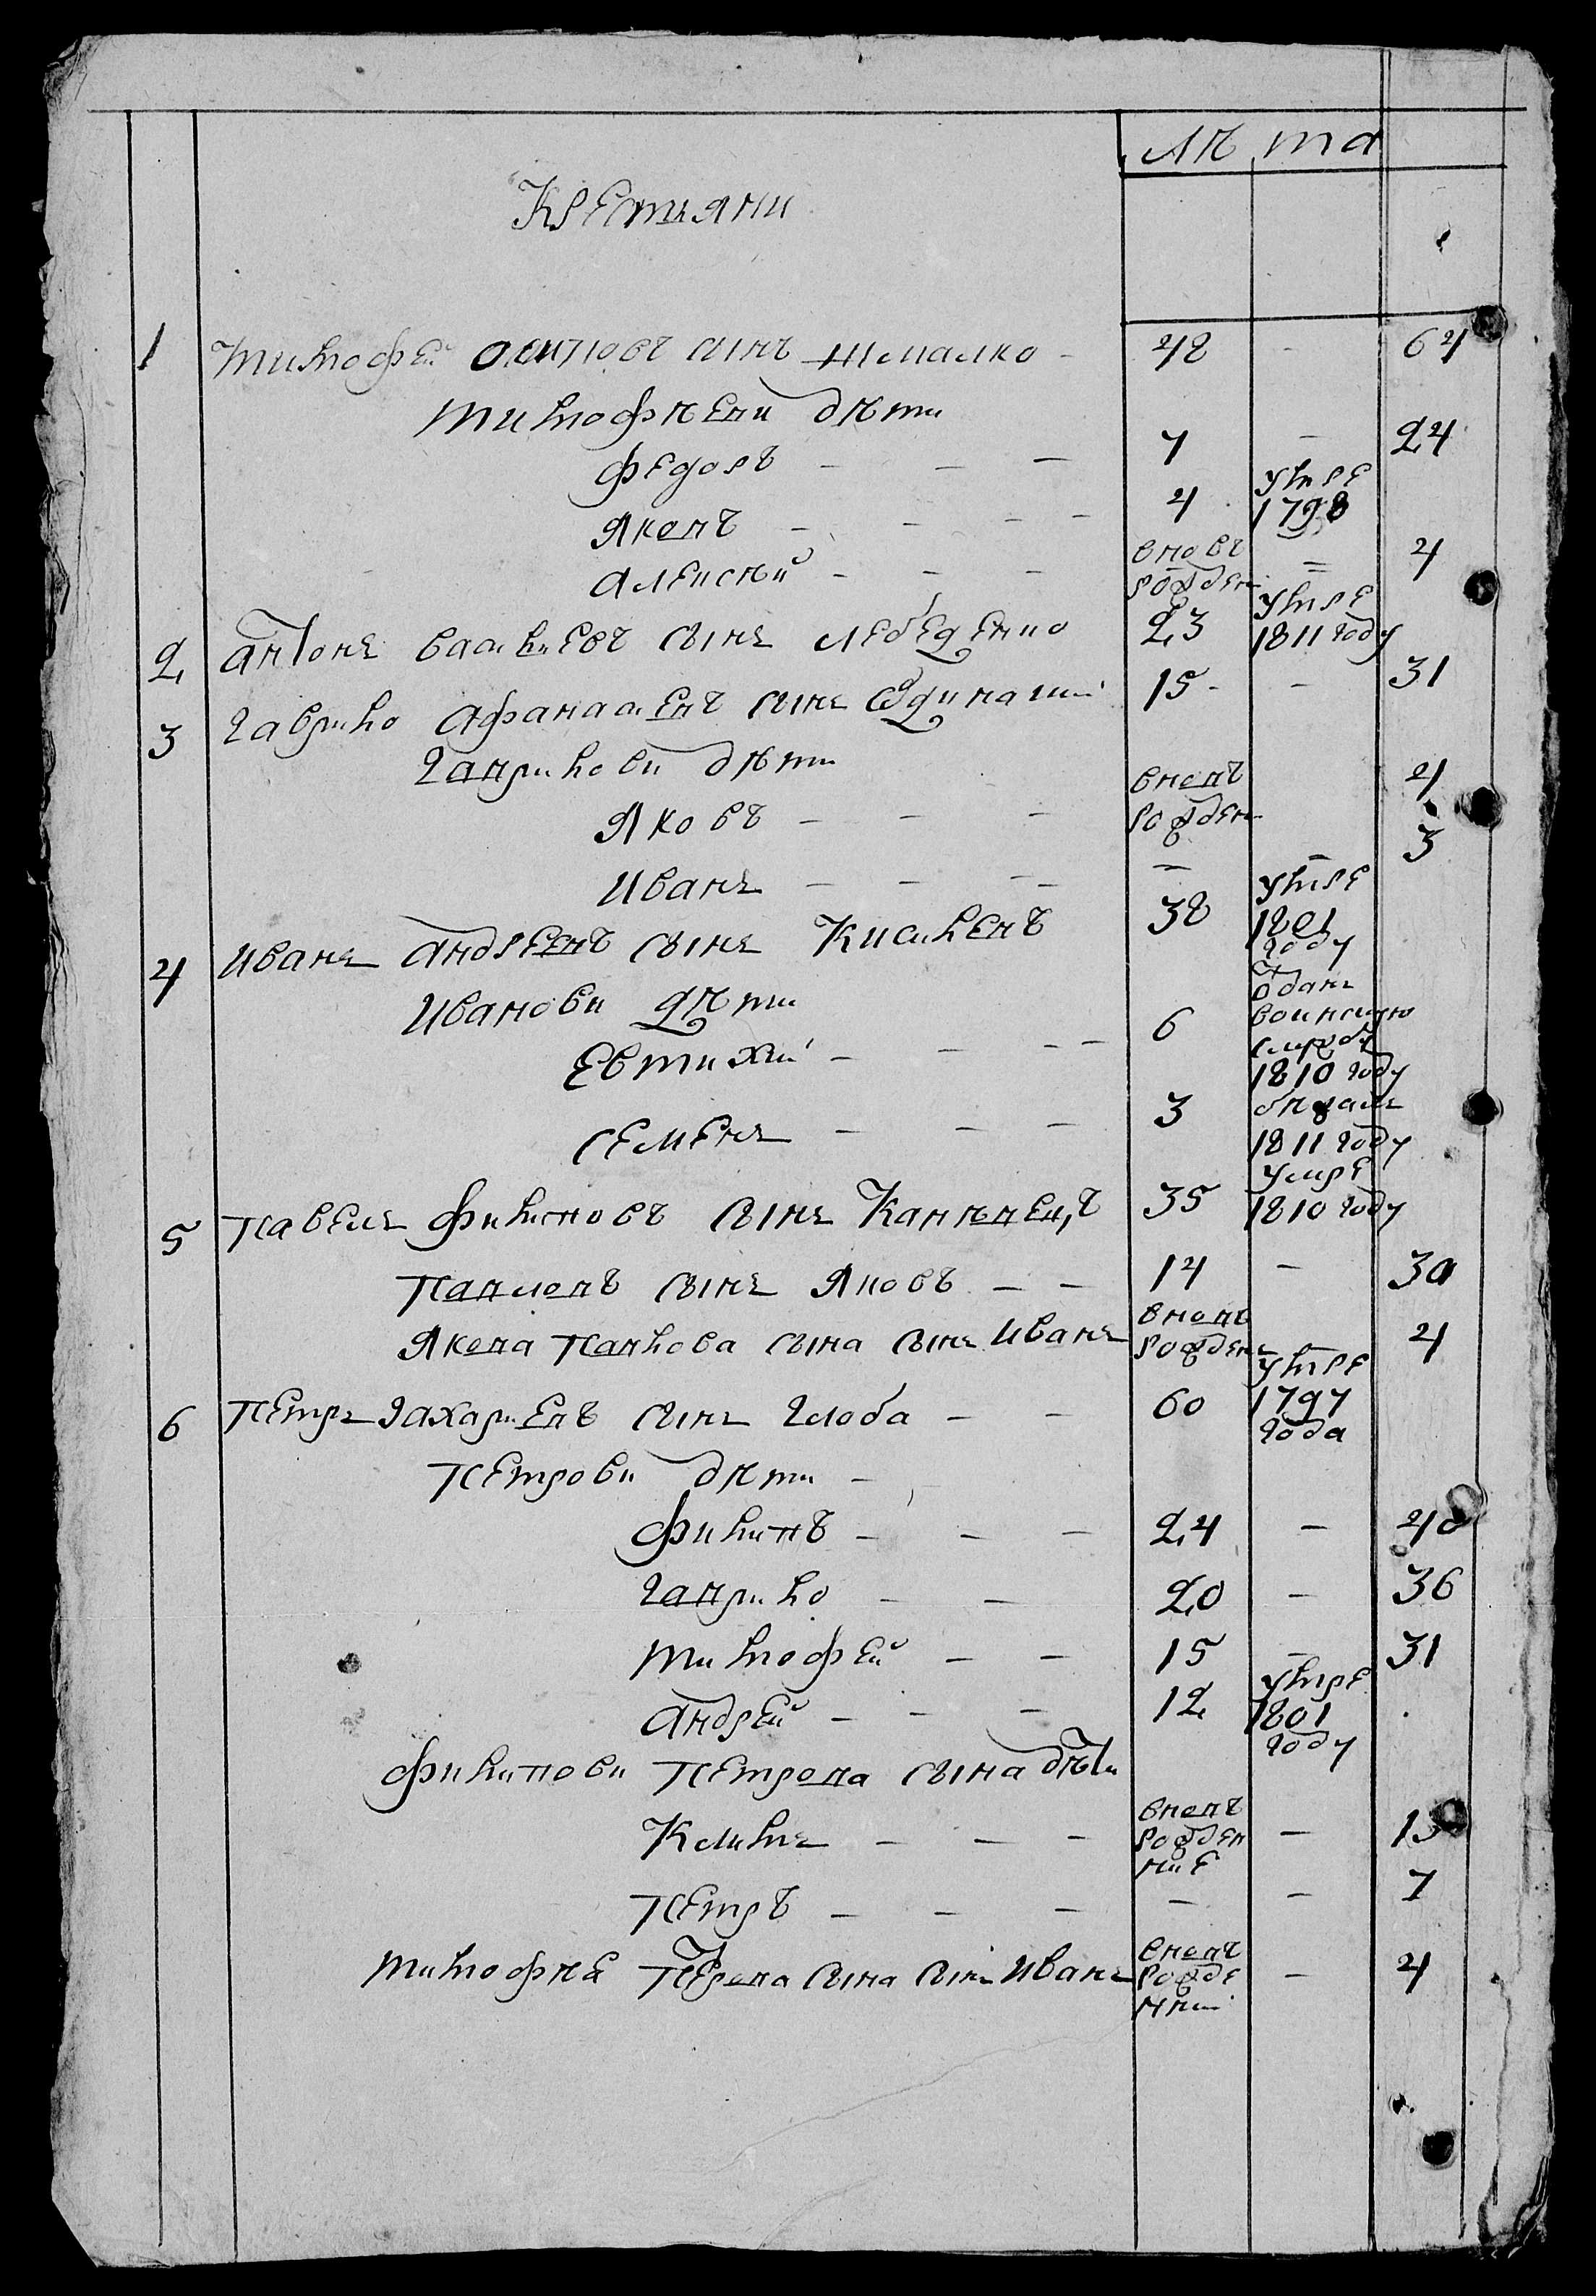 Лѣта
Крестьяни
1 Тимофей Осиповъ сынъ Шмалко - 48 - 64
Тимофѣеви дѣти
Федоръ - - - 7 - 24
Яковъ - - - - 4 умре 1798
Алексѣй - - - вновь рожден = 4
2 Антонъ Васильевъ сынъ Лебеденко 23 умре 1811 году
3 Гаврило Афанасиевъ сынъ 15 - - 31
Гаврилови дѣти
Яковъ - - - вновъ рожден 4
Иванъ - - - - - - 3
4 Иванъ Андреевъ сынъ Киселевъ 38 умре 1801 году
Иванови дѣти
Евтихий - - - - 6 отданъ воинскую службу 1810 году
Семенъ - - - 3 бѣжалъ 1811 году
5 Павелъ Филиповъ сынъ Каневецъ 35 умре 1810 году
Павловъ сынъ Яковъ - - 14 - 30
Якова Павлова сына сынъ Иванъ вновъ рожденъ - 4
6 Петръ Захариевъ сынъ Глоба - - 60 умре 1797 года
Петрови дѣти -
Филипъ - - - 24 - 40
Гаврило - - 20 - 36
Тимофей - - 15 - 31
Андрей - - - 12 умре 1801 году
Филипови Петрова сына дѣти
Климъ - - - вновъ рожденние - 13
Петръ - - - - - 7
Тимофѣя Петрова сына сынъ Иванъ вновъ рожденний - 4